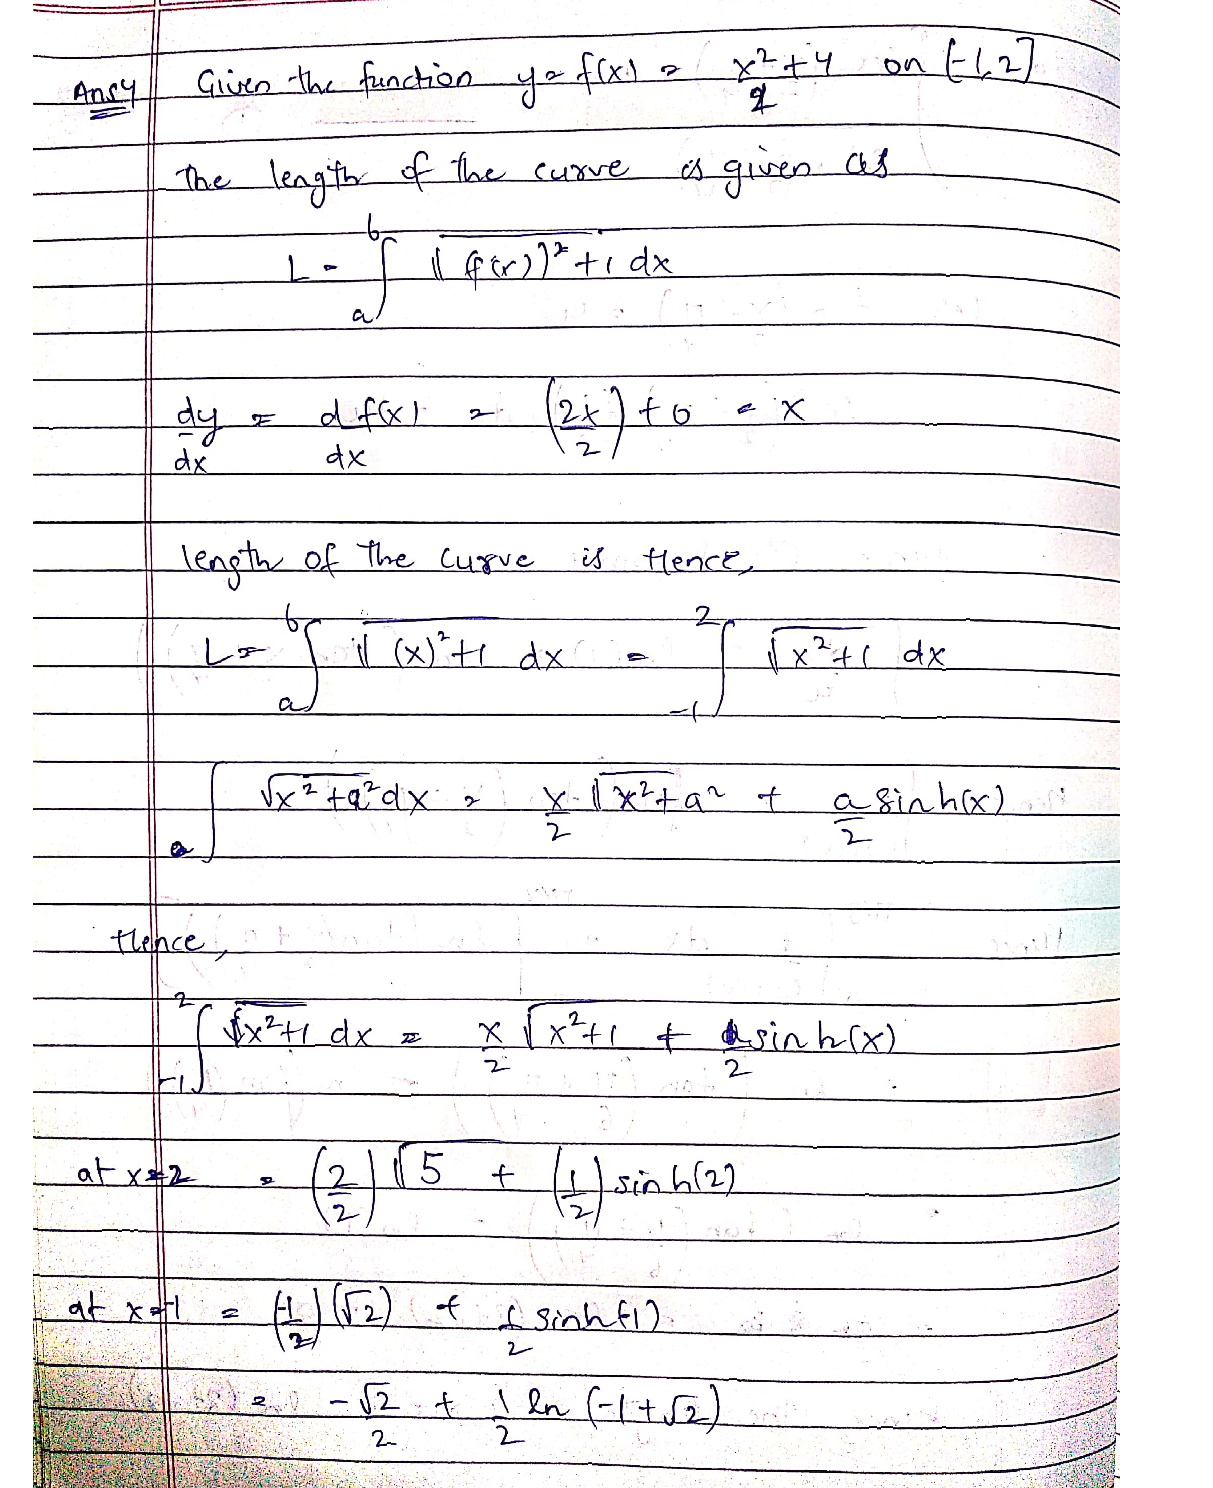 Ans4 Given the function y = f(x) = x²+4/2 on [-1,2]
The length of the curve is given as
L = ∫ₐᵇ √(f(x))²+1 dx
dy/dx = d f(x)/dx = (2x/2) + 0 = x
length of the curve is Hence,
L = ∫ₐᵇ √(x)²+1 dx = ∫₋₁² √x²+1 dx
∫ₐ √x²+a² dx = x/2 √x²+a² + a/2 sinh(x)
Hence,
∫₋₁² √x²+1 dx = x/2 √x²+1 + 1/2 sinh(x)
at x=2 = (2/2) √5 + (1/2) sinh(2)
at x=-1 = (-1/2) (√2) + 1/2 sinh(-1)
= -√2/2 + 1/2 ln (-1+√2)